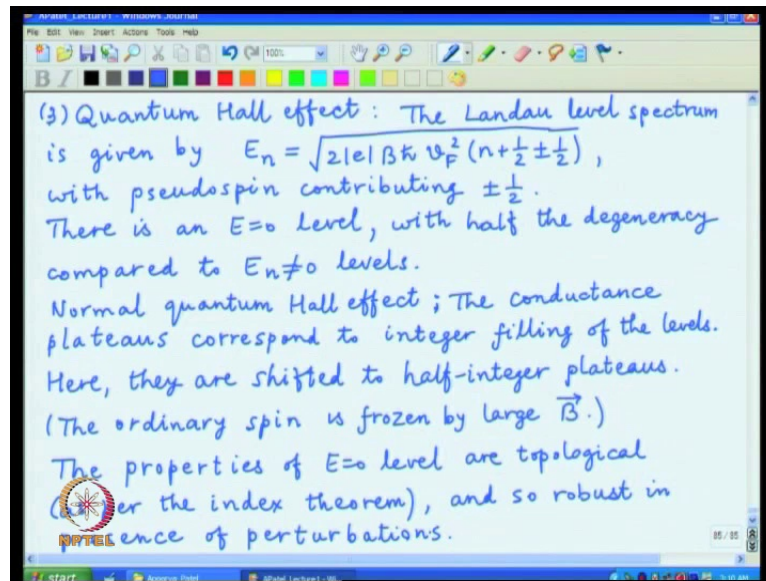 APatel_Lecture1 - Windows Journal
File Edit View Insert Actions Tools Help
100%
B I
(3) Quantum Hall effect : The Landau level spectrum
is given by E_n = √2|e|Bħ v_F^2 (n+½±½) ,
with pseudospin contributing ±½.
There is an E=0 level, with half the degeneracy
compared to E_n≠0 levels.
Normal quantum Hall effect ; The conductance
plateaus correspond to integer filling of the levels.
Here, they are shifted to half-integer plateaus.
(The ordinary spin is frozen by large B⃗.)
The properties of E=0 level are topological
the index theorem), and so robust in
of perturbations.
NPTEL
85 / 85
start Apoorva Patel APatel_Lecture1 - Wi... 3:10 AM